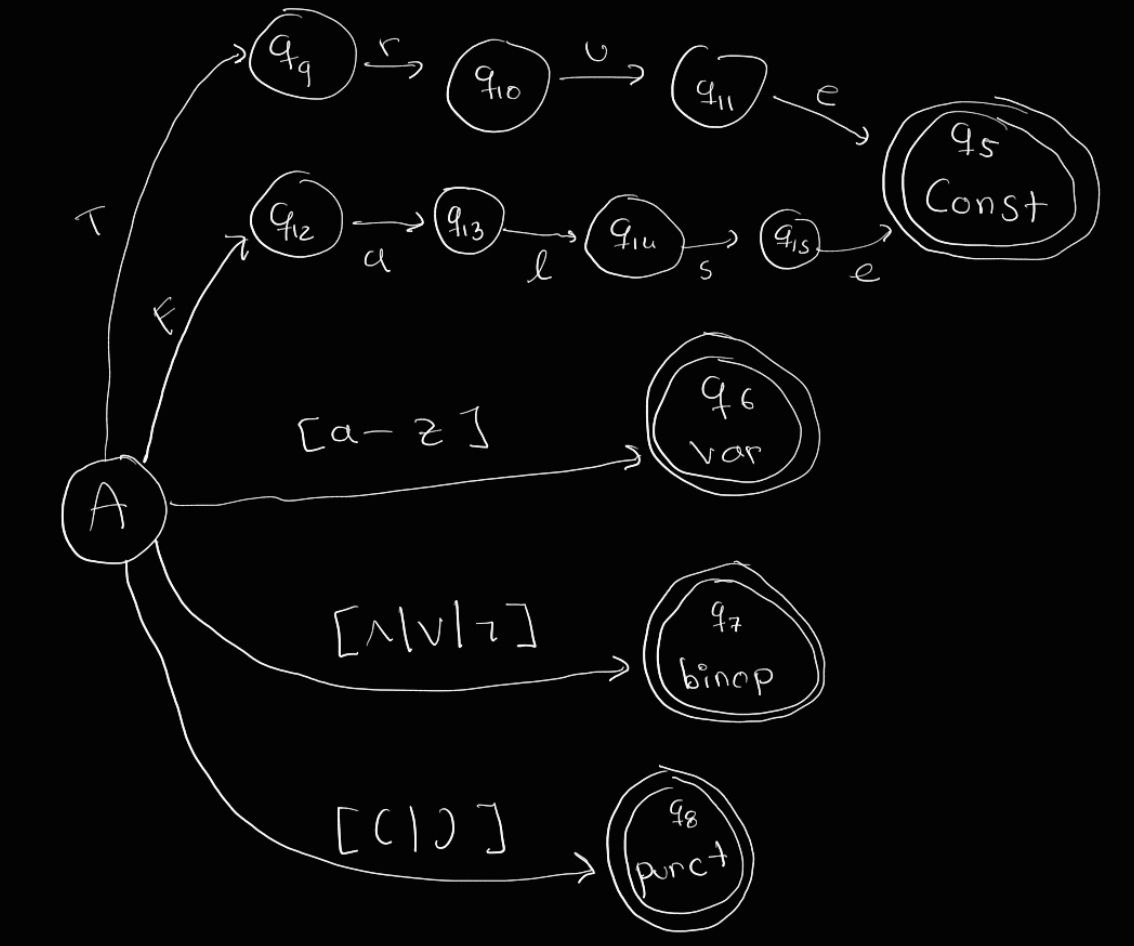 q9 r q10 u q11 e
q5
Const
T
q12 a q13 l q14 s q15 e
F
[a-z]
q6
var
A
[∧|∨|¬]
q7
binop
[(|)]
q8
punct